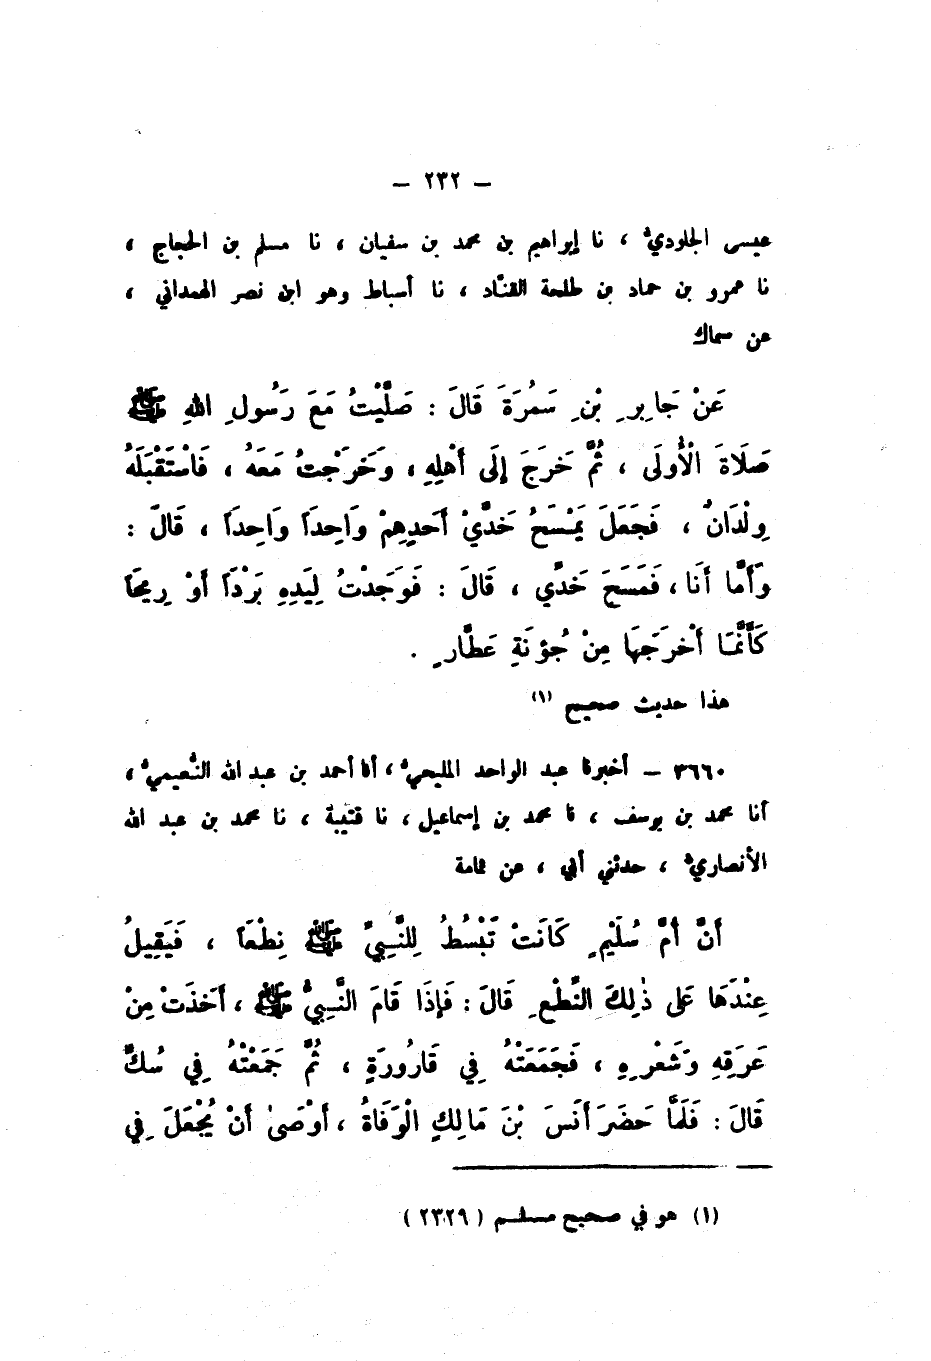 – ٢٣٢ –
عيسى الجلوديُّ ، نا إبراهيم بن محمد بن سفيان ، نا مسلم بن الحجاج ،
نا عمرو بن حماد بن طلحة القنَّاد ، نا أسباط وهو ابن نصر الهمداني ،
عن سماك
عَنْ جَابِرِ بْنِ سَمُرَةَ قَالَ : صَلَّيْتُ مَعَ رَسُولِ اللهِ ﷺ
صَلَاةَ الْأُولَى ، ثُمَّ خَرَجَ إِلَى أَهْلِهِ ، وَخَرَجْتُ مَعَهُ ، فَاسْتَقْبَلَهُ
وِلْدَانٌ ، فَجَعَلَ يَمْسَحُ خَدَّيْ أَحَدِهِمْ وَاحِدَاً وَاحِدَاً ، قَالَ :
وَأَمَّا أَنَا ، فَمَسَحَ خَدَّي ، قَالَ : فَوَجَدْتُ لِيَدِهِ بَرْدَاً أَوْ رِيحَاً
كَأَنَّمَا أَخْرَجَهَا مِنْ جُؤنَةِ عَطَّارٍ .
هذا حديث صحيح (١)
٣٦٦٠ – أخبرنا عبد الواحد المليحيُّ ، أنا أحمد بن عبد الله النُّعيميُّ ،
أنا محمد بن يوسف ، نا محمد بن إسماعيل ، نا قتيبة ، نا محمد بن عبد الله
الأنصاريُّ ، حدثني أبي ، عن ثمامة
أَنَّ أُمَّ سُلَيْمٍ كَانَتْ تَبْسُطُ لِلنَّبِيِّ ﷺ نِطْعَاً ، فَيَقِيلُ
عِنْدَهَا عَلَى ذٰلِكَ النِّطْعِ قَالَ : فَإِذَا قَامَ النَّبِيُّ ﷺ ، أَخَذَتْ مِنْ
عَرَقِهِ وَشَعْرِهِ ، فَجَمَعَتْهُ فِي قَارُورَةٍ ، ثُمَّ جَمَعَتْهُ فِي سُكٍّ
قَالَ : فَلَمَّا حَضَرَ أَنَسَ بْنَ مَالِكٍ الْوَفَاةُ ، أَوْصَىٰ أَنْ يُجْعَلَ فِي
(١) هو في صحيح مسلم (٢٣٢٩)